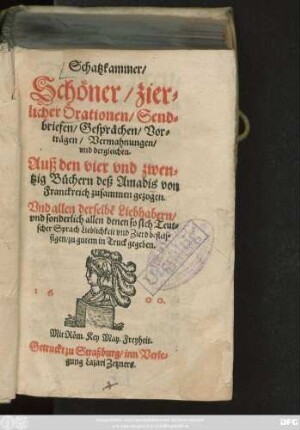 Schatzkammer/
Schöner/ zier-
licher Orationen/ Send-
briefen/ Gesprächen/ Vor-
trägen/ Vermahnungen/
und dergleichen.
Auß den vier und zwen-
tzig Büchern deß Amadis von
Franckreich zusammen gezogen.
Und allen derselbē Liebhabern/
und sonderlich allen denen so sich Teut-
scher Sprach Lieblichkeit und Zierd befleis-
sigen/ zu gutem in Truck gegeben.
16 00.
Mit Röm. Key. May. Freyheit.
Getruckt zu Straßburg/ inn Verle-
gung Lazari Zetzners.